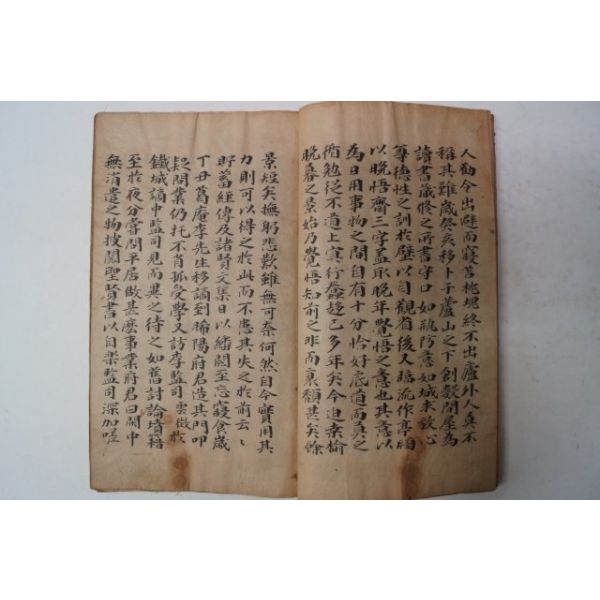 人勸令出避而寢苫枕塊終不出廬外人莫不
稱其難歲癸亥移卜子蘆山之下創數間屋爲
讀書藏修之所書守口如甁防意如城求放心
尊德性之訓於壁以自觀省後又臨流作亭扁
以晩悟齋三字盖取晩年覺悟之意也其意以
為日用事物之間自有十分恰好底道而眞之
循勉從不道上冥行麤趍已多年矣今迫桑榆
晩暮之景始乃覺悟知前之非而衰頹甚矣餘
景短矣撫躬悲歎雖無可奈何然自今實用其
力則可以得之於此而不患其失之於前云云
貯蓄經傳及諸賢文集日以繙閱至忘寢食歲
丁丑葛庵李先生移謫到晞陽府君造其門叩
疑問業仍托不肖孤受學又訪李監司雲徵於
鐵城謫中監司見而異之待之如舊討論墳籍
至於夜分嘗問平居做甚麽事業府君曰閒中
無消遣之物披閱聖賢書以自樂監司深加嗟